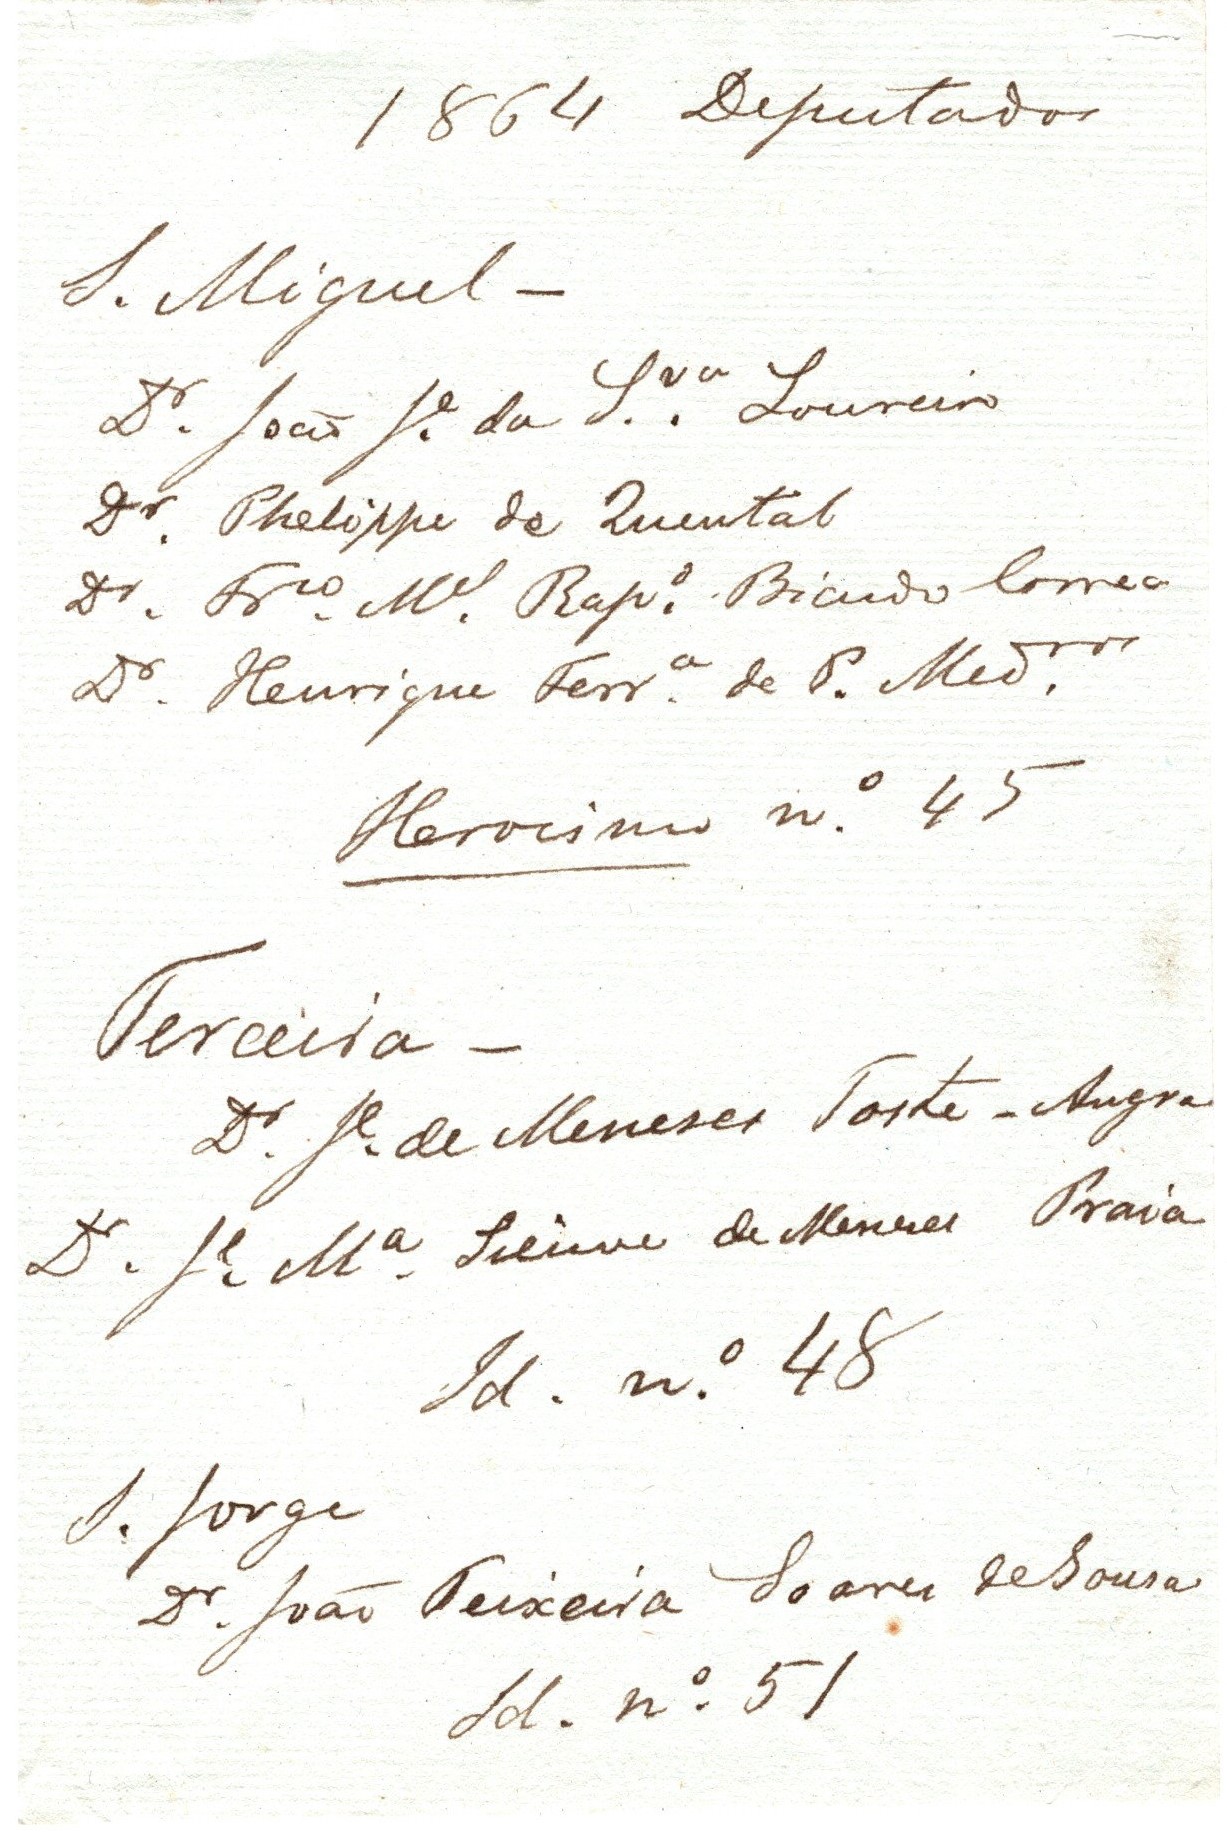 1864 Deputados
S. Miguel -
Dr. João Je. da Sva. Loureiro
Dr. Phelippe de Quental
Dr. Frco. Mel. Rapo. Bicudo Correa
Dr. Henrique Ferra. de P. Medros.
Heroismo n.º 45
Terceira -
Dr. Je. de Meneses Toste - Angra
Dr. Je. Ma. Sieuve de Meneses Praia
Id. n.º 48
S. Jorge
Dr. João Teixeira Soares de Sousa
Id. nº. 51